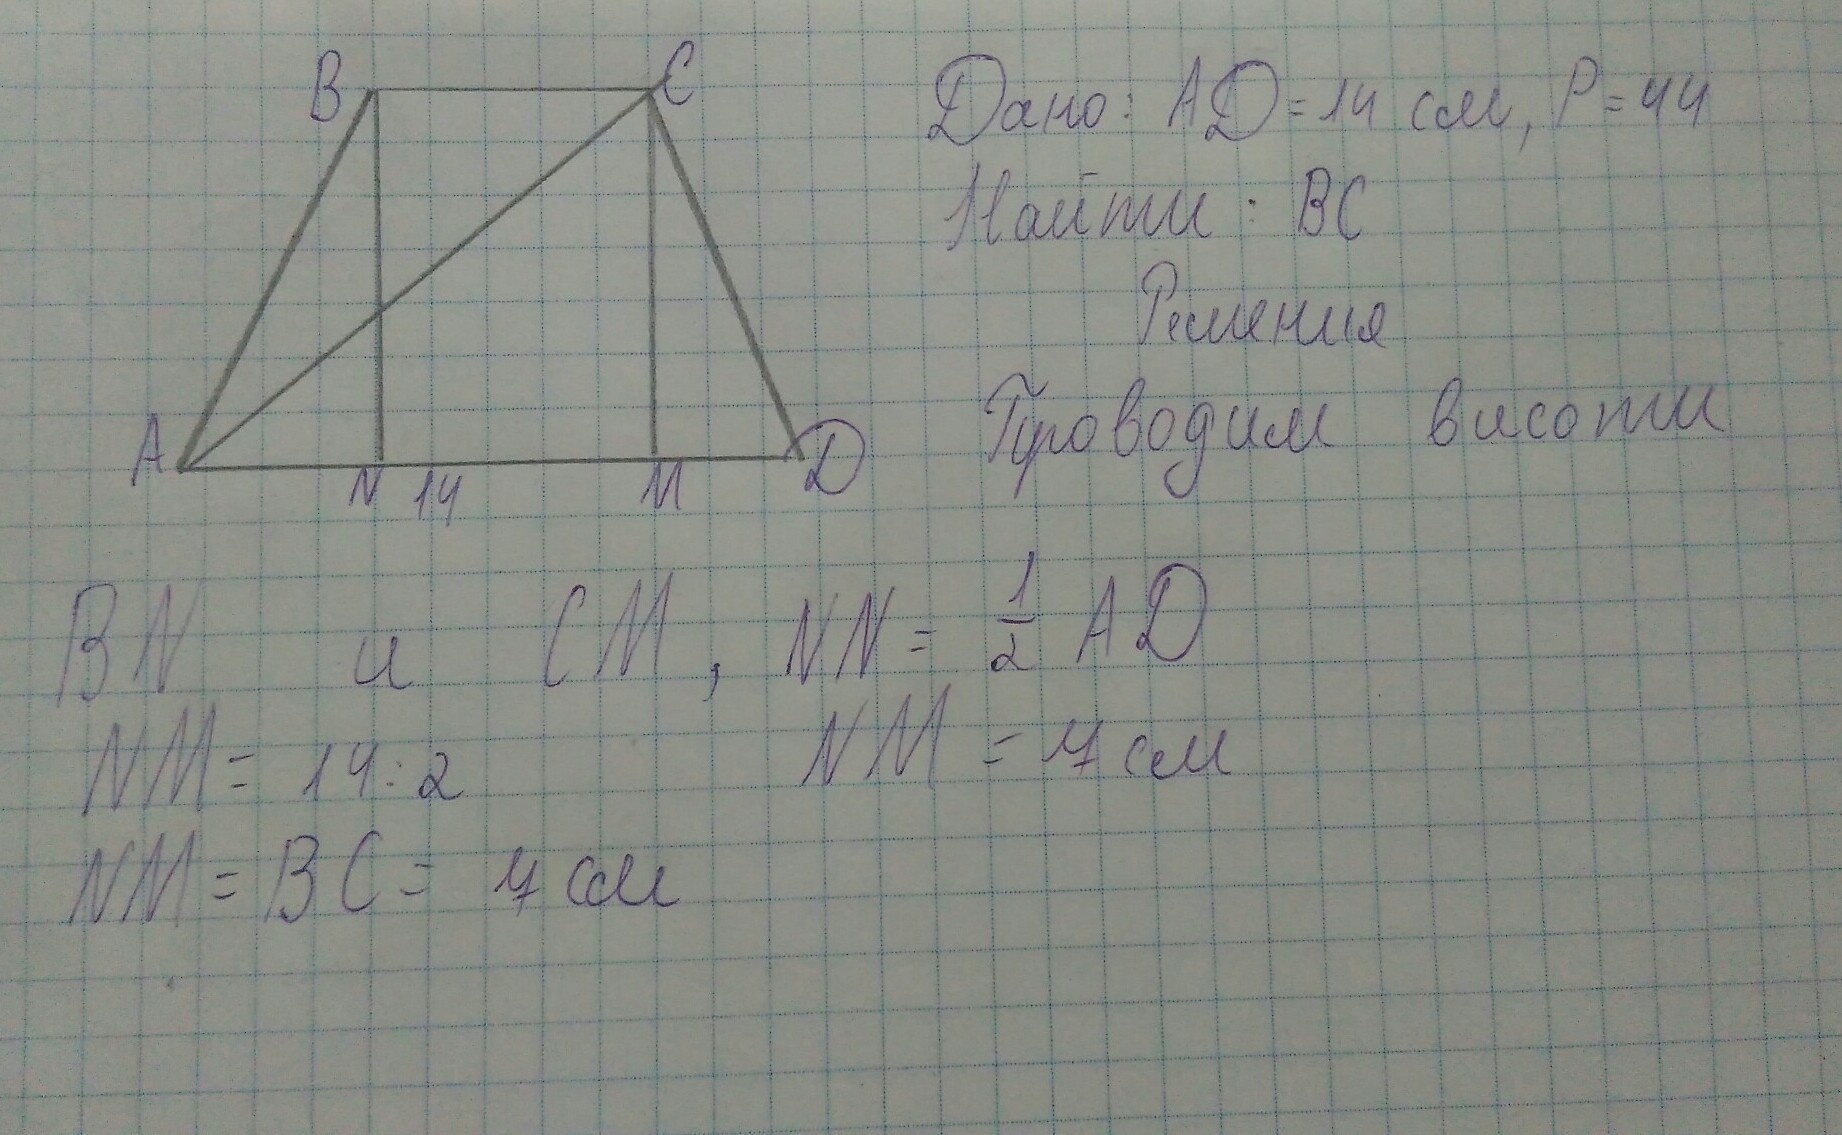 B C
Дано: AD = 14 см, P = 44
Найти: BC
Решения
A N 14 M D
Проводим висоти
BN и CM, NN = 1/2 AD
NM = 14 : 2 NM = 7 см
NM = BC = 7 см